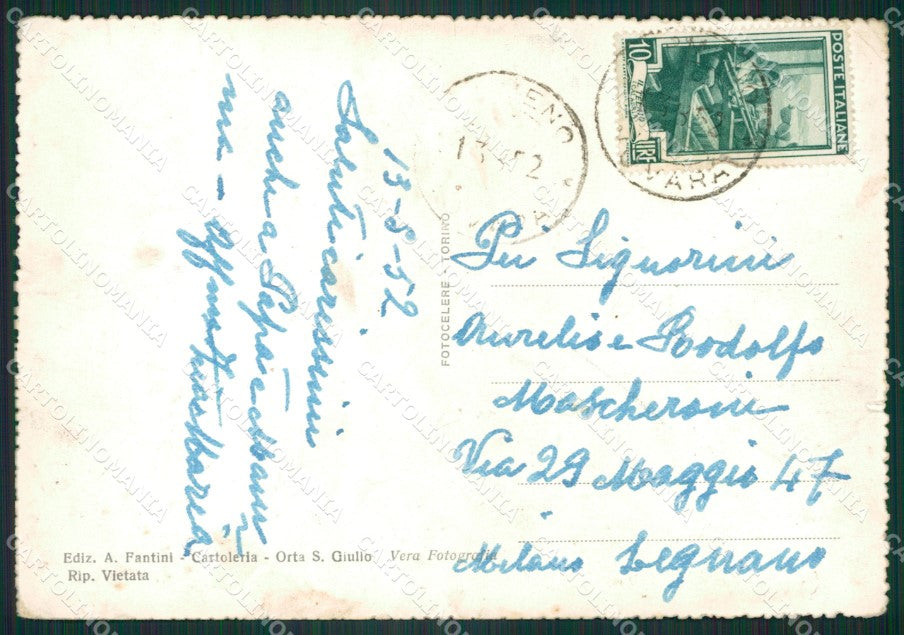 13-5-52
Saluti carissimi
anche a Papà e Mam
ma - Affma
Pei Signorini
Aurelio e Rodolfo
Mascheroni
Via 29 Maggio 47
Milano Legnano
POSTE ITALIANE
10
LIRE
ENO
13 52
VARA
FOTOCELERE - TORINO
Ediz. A. Fantini - Cartoleria - Orta S. Giulio Vera Fotografia
Rip. Vietata
CARTOLINOMANIA